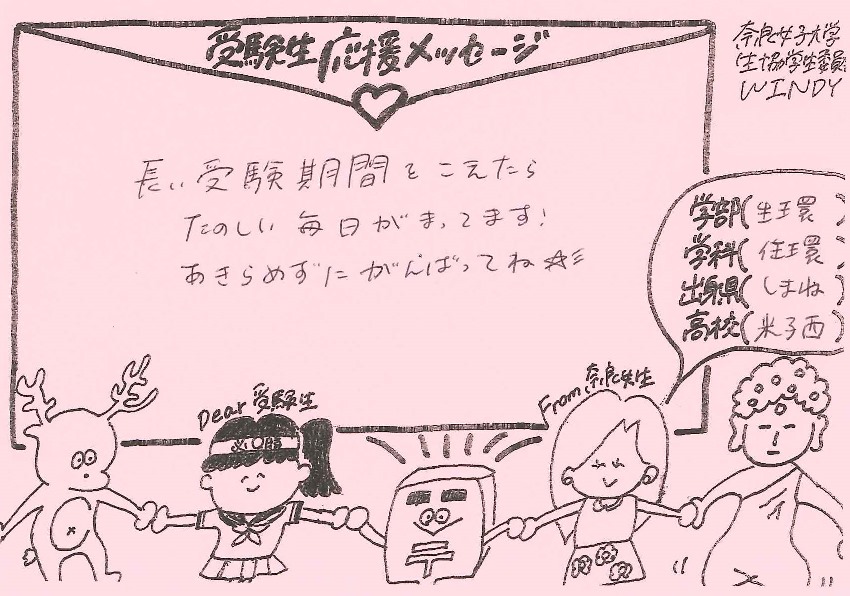 受験生応援メッセージ
奈良女子大学
生協学生委員
WINDY
長い受験期間をこえたら
たのしい毎日がまってます!
あきらめずにがんばってね☆
学部(生環)
学科(住環)
出身県(しまね)
高校(米子西)
Dear 受験生
From 奈良女生
必勝
〒